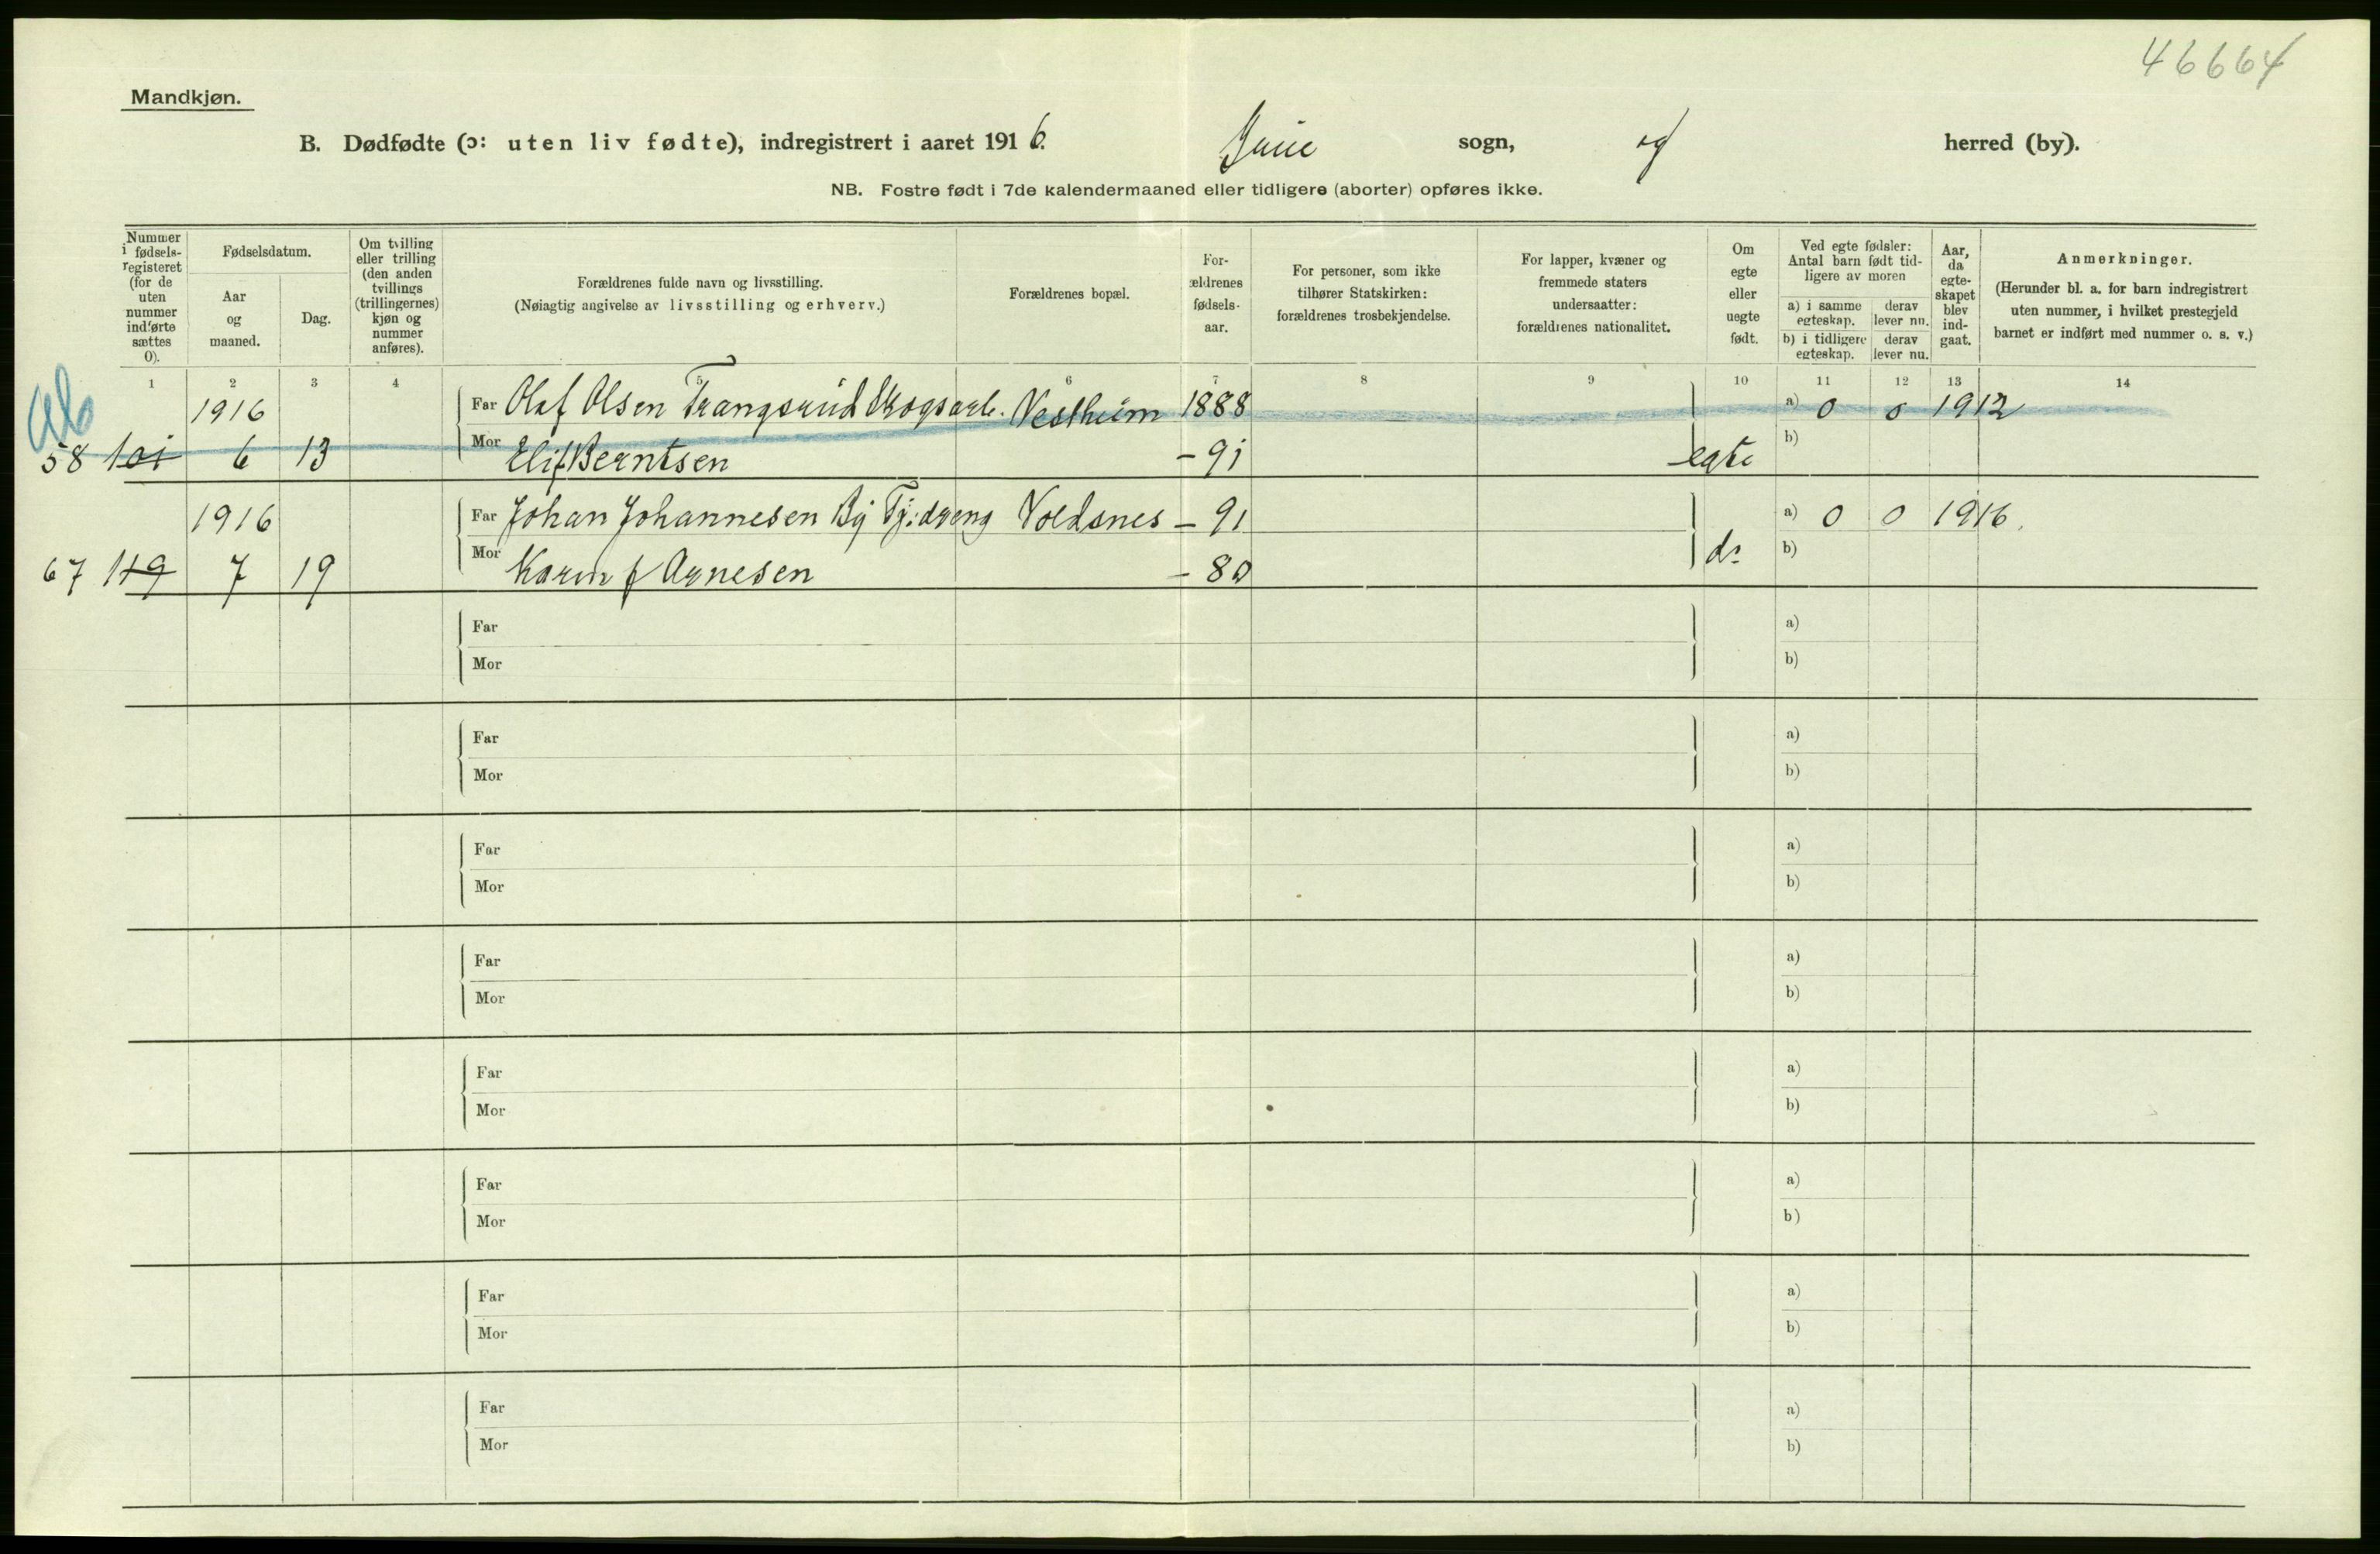 46664
Mandkjøn.
B. Dødfødte (ɔ: uten liv fødte), indregistrert i aaret 1916. sogn, og herred (by).
NB. Fostre født i 7de kalendermaaned eller tidligere (aborter) opføres ikke.
Nummer i fødsels-registeret (for de uten nummer indførte sættes 0).
Fødselsdatum.
Aar og maaned.
Dag.
Om tvilling eller trilling (den anden tvillings (trillingernes) kjøn og nummer anføres).
Forældrenes fulde navn og livsstilling.
(Nøiagtig angivelse av livsstilling og erhverv.)
Forældrenes bopæl.
For-ældrenes fødsels-aar.
For personer, som ikke tilhører Statskirken: forældrenes trosbekjendelse.
For lapper, kvæner og fremmede staters undersaatter: forældrenes nationalitet.
Om egte eller uegte født.
Ved egte fødsler: Antal barn født tid-ligere av moren
a) i samme egteskap.
derav lever nu.
b) i tidligere egteskap.
derav lever nu.
Aar, da egte-skapet blev ind-gaat.
Anmerkninger.
(Herunder bl. a. for barn indregistrert uten nummer, i hvilket prestegjeld barnet er indført med nummer o. s. v.)
1 2 3 4 5 6 7 8 9 10 11 12 13 14
1916 Far Olaf Olsen Trangsrud Skogsarb. Vestheim 1888 a) 0 0 1912
58 101 6 13 Mor Eli f Berntsen - 91 egte b)
1916 Far Johan Johannesen By Tj.dreng Voldsnes - 91 a) 0 0 1916.
67 119 7 19 Mor Karen f Arnesen - 80 do b)
Far a)
Mor b)
Far a)
Mor b)
Far a)
Mor b)
Far a)
Mor b)
Far a)
Mor b)
Far a)
Mor b)
Far a)
Mor b)
Far a)
Mor b)